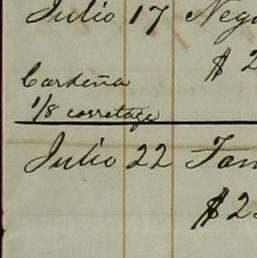 Julio 17 Neg
$ 2
Cardeña
1/8 corretage
Julio 22
$ 2